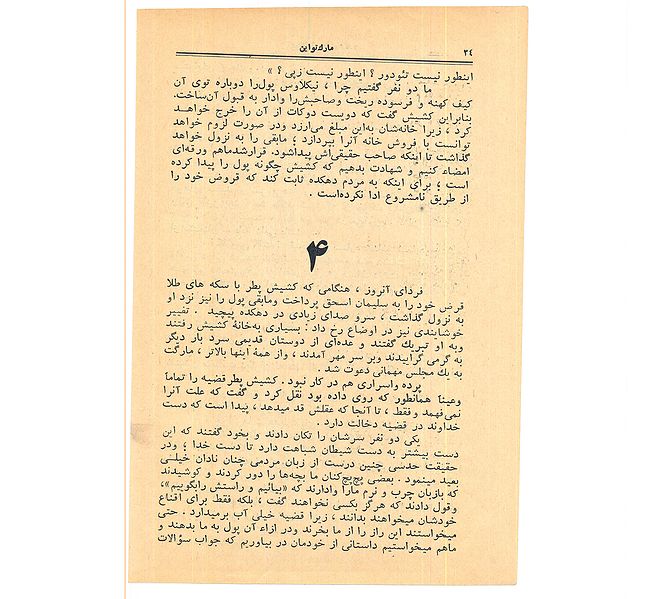 ۳٤
مارک تواین
اینطور نیست تئودور ؟ اینطور نیست زپی ؟ »
ما دو نفر گفتیم چرا ، نیکلاوس پول‌را دوباره توی آن
کیف کهنه و فرسوده ریخت وصاحبش‌را وادار به قبول آن‌ساخت.
بنابراین کشیش گفت که دویست دوکات از آن را خرج خواهد
کرد ، زیرا خانه‌شان به‌این مبلغ می‌ارزد ودر صورت لزوم خواهد
توانست با فروش خانه آنرا بپردازد ؛ مابقی را به نزول خواهد
گذاشت تا اینکه صاحب حقیقی‌اش پیداشود. قرارشدماهم ورقه‌ای
امضاء کنیم و شهادت بدهیم که کشیش چگونه پول را پیدا کرده
است ؛ برای اینکه به مردم دهکده ثابت کند که قروض خود را
از طریق نامشروع ادا نکرده‌است .
۴
فردای آنروز ، هنگامی که کشیش پطر با سکه های طلا
قرض خود را به سلیمان اسحق پرداخت ومابقی پول را نیز نزد او
به نزول گذاشت ، سرو صدای زیادی در دهکده پیچید . تغییر
خوشایندی نیز در اوضاع رخ داد : بسیاری به‌خانهٔ کشیش رفتند
وبه او تبریك گفتند و عده‌ای از دوستان قدیمی سرد بار دیگر
به گرمی گراییدند وبر سر مهر آمدند ، واز همهٔ اینها بالاتر ، مارگت
به یك مجلس مهمانی دعوت شد .
پرده واسراری هم در کار نبود . کشیش پطر قضیه را تماماً
وعیناً همانطور که روی داده بود نقل کرد و گفت که علت آنرا
نمی‌فهمد وفقط ، تا آنجا که عقلش قد میدهد ، پیدا است که دست
خداوند در قضیه دخالت دارد .
یکی دو نفر سرشان را تکان دادند و بخود گفتند که این
دست بیشتر به دست شیطان شباهت دارد تا دست خدا ؛ ودر
حقیقت حدسی چنین درست از زبان مردمی چنان نادان خیلی
بعید مینمود . بعضی پچ‌پچ‌کنان ما بچه‌ها را دور کردند و کوشیدند
که بازبان چرب و نرم مارا وادارند که «بیائیم و راستش رابگوییم»،
وقول دادند که هرگز بکسی نخواهند گفت ، بلکه فقط برای اقناع
خودشان میخواهند بدانند ، زیرا قضیه خیلی آب برمیدارد . حتی
میخواستند این راز را از ما بخرند ودر ازاء آن پول به ما بدهند و
ماهم میخواستیم داستانی از خودمان در بیاوریم که جواب سؤالات